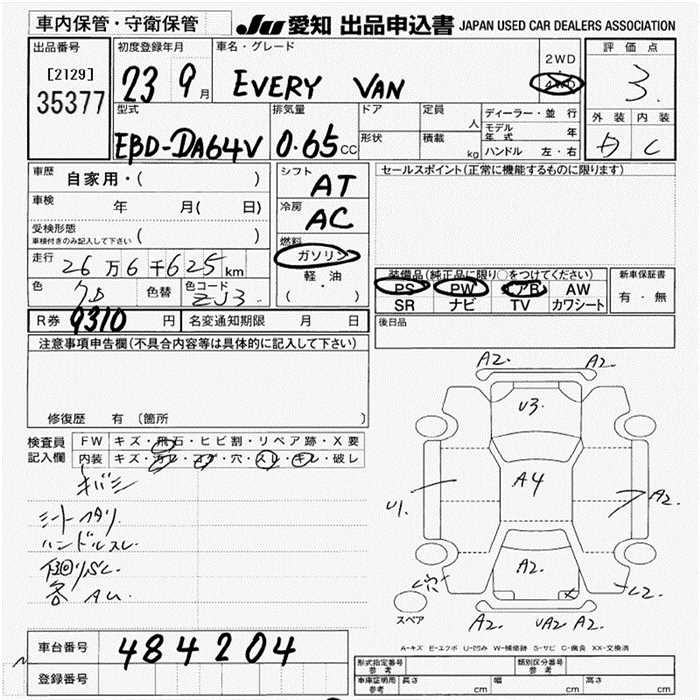 車内保管・守衛保管
JU 愛知 出品申込書 JAPAN USED CAR DEALERS ASSOCIATION
出品番号
[2129]
35377
初度登録年月
23 9月
車名・グレード
EVERY VAN
2WD
4WD
評価点
3.
外装 内装
C
型式
EBD-DA64V
排気量
0.65CC
ドア
形状
定員
人
積載
kg
ディーラー・並行
モデル年式 年
ハンドル 左・右
車歴
自家用・( )
車検
年 月( 日)
受検形態
車検付きのみ記入して下さい ( )
走行
26万6千625km
色
色替
色コード
ZJ3
シフト
AT
冷房
AC
燃料
ガソリン
軽・油
( ・ )
セールスポイント(正常に機能するものに限ります)
装備品(純正品に限り○をつけてください)
PS PW エアB AW
SR ナビ TV カワシート
新車保証書
有・無
後日品
R券 9310 円
名変通知期限 月 日
注意事項申告欄(不具合内容等は具体的に記入して下さい)
修復歴 有〔箇所 〕
検査員記入欄
FW キズ・飛石・ヒビ割・リペア跡・X要
内装 キズ・汚レ・コゲ・穴・スレ・キレ・破レ
キバミ
シートヘタリ
ハンドルスレ
下回りSC
各 AU
A2. A2.
U3
A4
U1.
A2.
A2.
穴
L2
A2. UA2 A2.
スペア
A-キズ E-エクボ U-凹み W-補修跡 S-サビ C-腐食 XX-交換済
車台番号 484204
登録番号
形式指定番号 参考
類別区分番号 参考
車庫証明用 参考
長さ cm 幅 cm 高さ cm